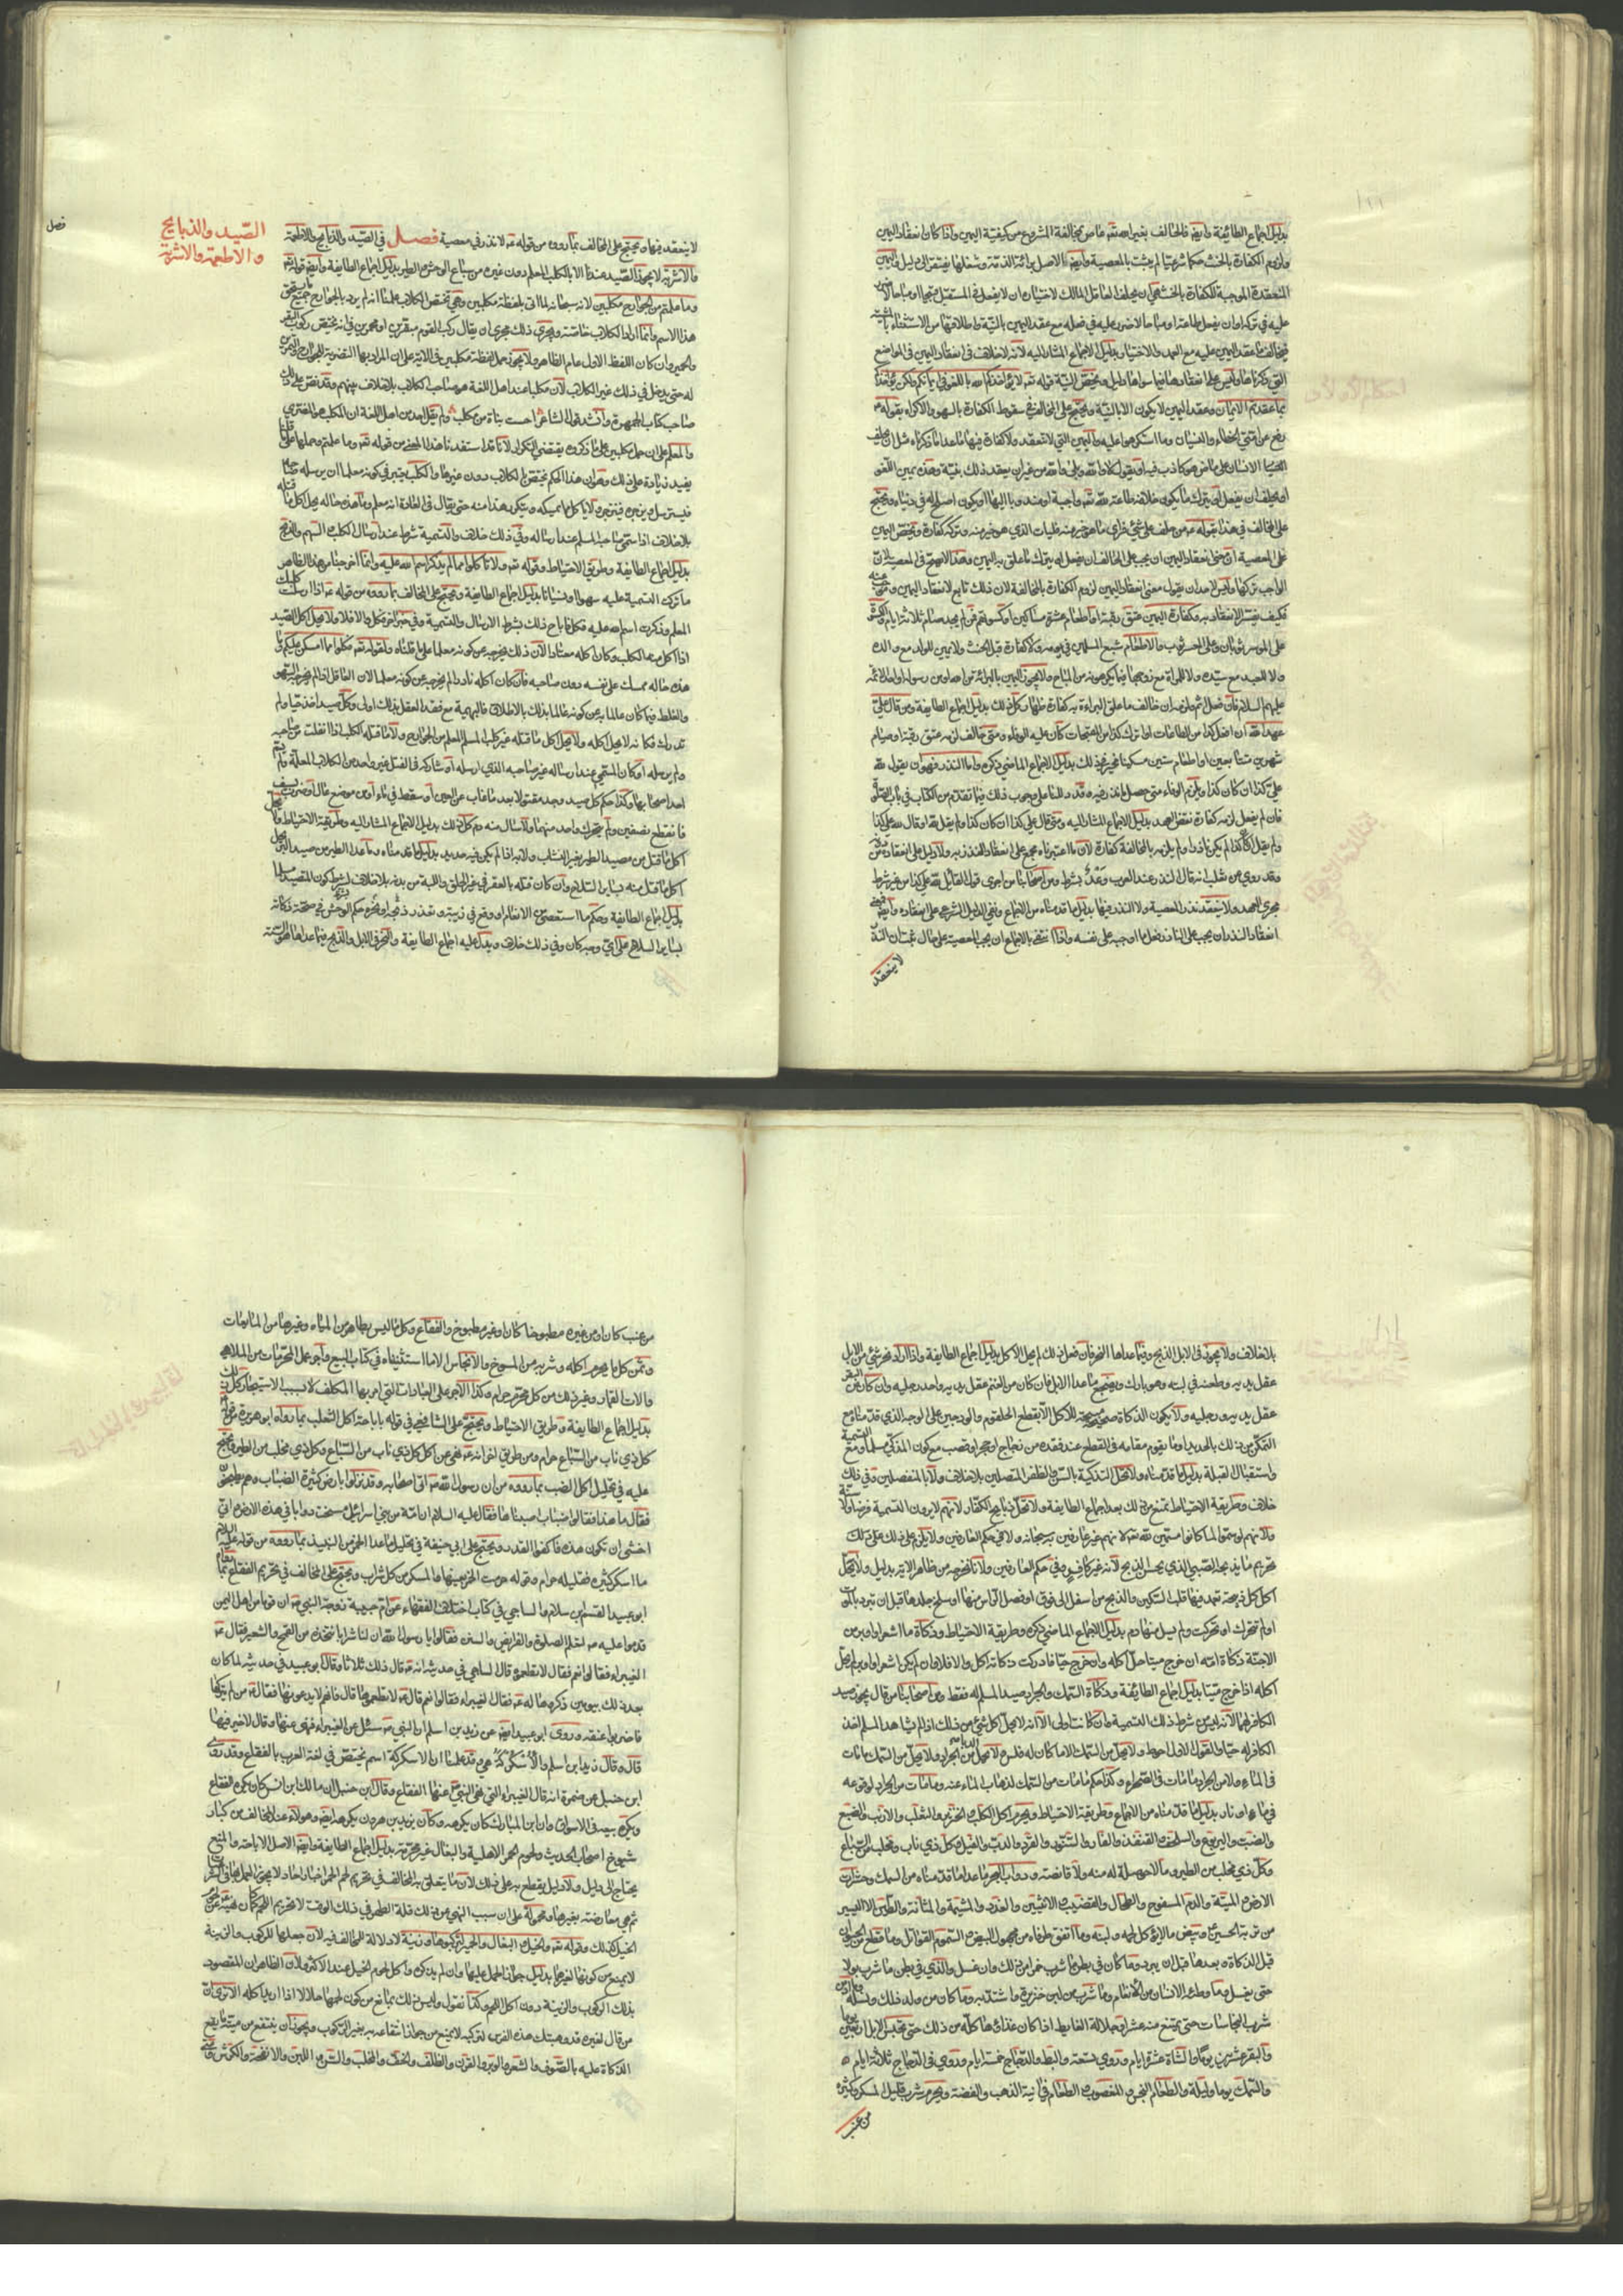 بدليل اجماع الطائفة وايضا فالحالف بغير الله تعالى عاص بمخالفة المشروع من كيفية اليمين واذا كان انعقاد اليمين
ولزوم الكفارة بالحنث حكما شرعيا لم يثبت بالمعصية وايضا فالاصل براءة الذمة وشغلها يفتقر الى دليل واليمين
المنعقدة الموجبة للكفارة بالحنث هي ان يحلف العاقل المالك لاختياره ان لا يفعل في المستقبل قبيحا او مباحا لا ضرر
عليه في تركه او ان يفعل طاعة او مباحا لا ضرر عليه في فعله مع عقد اليمين بالنية واطلاقها من الاستثناء بالمشية
فيخالف ما عقد اليمين عليه مع العمد والاختيار بدليل الاجماع المشار اليه لانه لا خلاف في انعقاد اليمين في المواضع
التي ذكرناها وليس على انعقادها فيما سواها دليل ويخص النية قوله تعالى لا يؤاخذكم الله باللغو في ايمانكم ولكن يؤاخذكم
بما عقدتم الايمان وعقد اليمين لا يكون الا بالنية ويحتج على المخالف في سقوط الكفارة بالسهو والاكراه بقوله ع
رفع عن امتي الخطاء والنسيان وما استكرهوا عليه واليمين التي لا تنعقد ولا كفارة فيها ما عدا ما ذكرناه مثل ان يحلف
الانسان على ماض هو كاذب فيه او يقول لا والله وبلى والله من غير ان يعقد ذلك بنية وهذه يمين اللغو
او يحلف ان يفعل او يترك ما يكون خلافه طاعة لله تعالى واجبة او مندوبا اليها او يكون اصلح له في دنياه ويحتج
على المخالف في هذا بقوله ع من حلف على شيء فرأى ما هو خير منه فليأت الذي هو خير منه وتركه كفارة ويخص اليمين
على المعصية ان معنى انعقاد اليمين ان يجب على الحالف ان يفعل او يترك ما علق به اليمين وهذا لا يصح في المعصية لان
الواجب تركها وليس لاحد ان يقول معنى انعقاد اليمين لزوم الكفارة بالمخالفة لان ذلك تابع لانعقاد اليمين وموجب عنه
فكيف يفسر الانعقاد به وكفارة اليمين عتق رقبة او اطعام عشرة مساكين او كسوتهم فمن لم يجد صيام ثلاثة ايام والكسوة
على الموسر ثوبان وعلى المعسر ثوب والاطعام شبع المسكين في يومه ولا كفارة قبل الحنث ولا يمين للولد مع والده
ولا للعبد مع سيده ولا للمراة مع زوجها فيما يكرهونه من المباح ولا يجوز اليمين بالبراءة من الله او من رسوله او احد الائمة
عليهم السلام فان فعل اثم ولزمه ان خالف ما علق البراءة به كفارة ظهار وكل ذلك بدليل اجماع الطايفة ومن قال علي
عهد الله ان افعل كذا من الطاعات او اترك كذا من المقبحات كان عليه الوفاء ومتى خالف لزمه عتق رقبة او صيام
شهرين متتابعين او اطعام ستين مسكينا مخير في ذلك بدليل الاجماع الماضي ذكره واما النذر فهو ان يقول لله
علي كذا ان كان كذا ويلزم الوفاء متى حصل ما نذر فيه وقد دللنا على وجوب ذلك فيما تقدم من الكتاب في باب الصلوة
فان لم يفعل لزمه كفارة نقض العهد بدليل الاجماع المشار اليه ومتى قال علي كذا ان كان كذا ولم يقل لله او قال لله علي كذا
ولم يقل ان كان كذا لم يكن ناذرا ولم يلزمه بالمخالفة كفارة لان ما اعتبرناه مجمع على انعقاد النذر به ولا دليل على انعقاده من دونه
وقد روي عن ثعلب انه قال النذر عند العرب وعد بشرط ومن اصحابنا من اجرى قول القائل لله علي كذا من غير شرط
مجرى العهد ولا ينعقد نذر المعصية ولا النذر فيها بدليل ما قدمناه من الاجماع ونفي الدليل الشرعي على انعقاده وايضا فمعنى
انعقاد النذر ان يجب على الناذر فعل ما اوجبه على نفسه واذا انتفى بالاجماع ان يجب المعصية على حال ثبت ان النذر
لا ينعقد
الصيد والذبايح
والاطعمة والاشربة
فصل
لا ينعقد فيها ويحتج على المخالف بما رووه من قوله ع لا نذر في معصية فصل في الصيد والذبايح والاطعمة
والاشربة لا يجوز الصيد عندنا الا بالكلب المعلم دون غيره من سباع الوحش والطير بدليل اجماع الطايفة وايضا قوله تعالى
وما علمتم من الجوارح مكلبين لانه سبحانه لما اتى بلفظة مكلبين وهي تختص الكلاب علمنا انه لم يرد بالجوارح جميع ما يستحق
هذا الاسم وانما اراد الكلاب خاصة ويجري ذلك مجرى ان يقال ركب القوم مبقرين او محمرين في انه يختص ركوب البقر
والحمير وان كان اللفظ الاول عام الظاهر ولا يجوز حمل لفظة مكلبين في الاية على ان المراد بها التضرية للجوارح والتمرين
له حتى يدخل في ذلك غير الكلاب لان مكلبا عند اهل اللغة هو صاحب الكلاب بلا خلاف بينهم وقد نص على ذلك
صاحب كتاب الجمهرة وانشد قول الشاعر احست نباة من مكلب ولم يقل احد من اهل اللغة ان المكلب هو المغري
والمعلم على ان حمل مكلبين على ما ذكروه يقتضي التكرار لانا قد استفدنا هذا المعنى من قوله تعالى وما علمتم وحملها على ما قلنا
يفيد زيادة على ذلك وهو ان هذا الحكم يختص الكلاب دون غيرها والكلب يعتبر في كونه معلما ان يرسله صاحبه
فيسترسل ويزجره فينزجر ولا ياكل ما يمسكه ويتكرر هذا منه حتى يقال في العادة انه معلم وما هذه حاله يحل اكل ما قتله
بلا خلاف اذا سمى صاحبه المسلم عند ارساله وفي ذلك خلاف والتسمية شرط عند ارسال الكلب والسهم والذبح
بدليل اجماع الطايفة وطريق الاحتياط وقوله تعالى ولا تاكلوا مما لم يذكر اسم الله عليه وانما اخرجنا من هذا الظاهر
ما ترك التسمية عليه سهوا او نسيانا بدليل اجماع الطايفة ويحتج على المخالف بما رووه من قوله ع اذا ارسلت كلبك
المعلم وذكرت اسم الله عليه فكل فاباح ذلك بشرط الارسال والتسمية وفي خبر اخر فكل والا فلا ولا يحل اكل الصيد
اذا اكل منه الكلب وكان اكله معتادا لان ذلك يخرجه عن كونه معلما على ما قلناه ولقوله تعالى فكلوا مما امسكن عليكم وما
هذه حاله ممسك على نفسه دون صاحبه فان كان اكله نادرا لم يخرجه عن كونه معلما لان العاقل اذا لم يخرجه السهو
والغلط فيما كان عالما به عن كونه عالما بذلك بالاطلاق فالبهيمة مع فقد العقل بذلك اولى وكل صيد اخذ حيا ولم
تدرك ذكاته لا يحل اكله ولا يحل اكل ما قتله غير كلب المسلم المعلم من الجوارح ولا ما قتله الكلب اذا انفلت من صاحبه
ولم يرسله او كان المسمي عند ارساله غير صاحبه الذي ارسله او شاركه في القتل غير واحد من الكلاب المعلمة ولم يسم
احد اصحابها وكذا حكم كل صيد وجد مقتولا بعد ما غاب عن العين او سقط في ماء او من موضع عال او ضرب بسيف
فانقطع بنصفين ولم يتحرك واحد منهما ولا سال منه دم كل ذلك بدليل الاجماع المشار اليه وطريقة الاحتياط ولا يحل
اكل ما قتل من مصيد الطير بغير النشاب ولا به اذا لم يكن فيه حديد بدليل ما قدمناه وما عدا الطير من صيد البر يحل
اكل ما قتل منه بساير السلاح وان كان قتله بالعقر في غير الحلق واللبة من بدنه بلا خلاف بشرط كون المتصيد مسلما
بدليل اجماع الطايفة وحكم ما استعصى من الانعام او وقع في زبية وتعذر ذبحه او نحره حكم الوحش في صحة ذكاته
بساير السلاح على اي وجه كان وفي ذلك خلاف ويدل عليه اجماع الطايفة والنحر في الابل والذبح فيما عداها هو السنة
بلا خلاف ولا يجوز في الابل الذبح وفيما عداها النحر فان فعل ذلك لم يحل الاكل بدليل اجماع الطايفة واذا اراد نحر شيء من الابل
عقل يديه وطعنه في لبته وهو بارك ويضجع ما عدا الابل فان كان من الغنم عقل يديه واحد رجليه وان كان من البقر
عقل يديه ورجليه ولا يكون الذكاة صحيحة مبيحة للاكل الا بقطع الحلقوم والودجين على الوجه الذي قدمناه مع
التمكن من ذلك بالحديد او ما يقوم مقامه في القطع عند فقده من زجاج او حجر او قصب مع كون المذكي مسلما ومع التسمية
واستقبال القبلة بدليل ما قدمناه ولا تحل التذكية بالسن والظفر المتصلين بلا خلاف ولا بالمنفصلين وفي ذلك
خلاف وطريقة الاحتياط تمنع من ذلك بعد اجماع الطايفة ولا تحل ذبايح الكفار لانهم لا يرون التسمية فرضا ولا سنة
ولانهم لو سموا لما كانوا مسمين لله تعالى لانهم غير عارفين به سبحانه ولا في حكم العارفين ولا يلزم على ذلك
تحريم ما يذبحه الصبي الذي يحسن الذبح لانه غير كافر وفي حكم العارفين ولانا نخرجه من ظاهر الاية بدليل ولا يحل
اكل كل ذبيحة تعمد فيها قلب السكين والذبح من اسفل الى فوق او فصل الراس منها او سلخ جلدها قبل ان تبرد بالموت
او لم تتحرك او تحركت ولم يسل منها دم بدليل الاجماع الماضي ذكره وطريقة الاحتياط وذكاة ما اشعر او اوبر من
الاجنة ذكاة امه ان خرج ميتا حل اكله وان خرج حيا فادركت ذكاته اكل والا فلا وان لم يكن اشعر او اوبر لم يحل
اكله اذا خرج ميتا بدليل اجماع الطايفة وذكاة السمك والجراد صيد المسلم له فقط ومن اصحابنا من قال يجوز صيد
الكافر لهما لانه ليس من شرط ذلك التسمية وان كانت اولى الا انه لا يحل اكل شيء من ذلك اذا لم يشاهد المسلم اخذ
الكافر له حيا والقول الاول احوط ولا يحل من السمك الا ما كان له فلس ولا يحل من الجراد الدبا ولا يحل من السمك ما مات
في الماء ولا من الجراد ما مات في الصحراء وكذا حكم ما مات من السمك لذهاب الماء عنه وما مات من الجراد لوقوعه
في ماء او نار بدليل ما قدمناه من الاجماع وطريقة الاحتياط ويحرم اكل الكلب والخنزير والثعلب والارنب والضبع
والضب واليربوع والسلحفاة والقنفذ والفار والسنور والقرد والدب والفيل وكل ذي ناب ومخلب من السباع
وكل ذي مخلب من الطير وما لا حوصلة له منه ولا قانصة ودواب البحر ما عدا ما قدمناه من السمك وحشرات
الارض والميتة والدم المسفوح والطحال والقضيب والانثيين والغدد والمشيمة والمثانة والطين الا اليسير
من تربة الحسين ع وبيض ما لا يؤكل لحمه ولبنه وما اتفق طرفاه من مجهول البيض والسموم القواتل وما قطع من الحيوان
قبل الذكاة وبعدها قبل ان يبرد وما كان في بطن ما شرب خمرا من ذلك وان غسل والذي في بطن ما شرب بولا
حتى يغسل وما وطئه الانسان من الانعام وما شرب من لبن خنزيرة واشتد به وما كان من ولد ذلك ونسله وما ادمن
شرب النجاسات حتى يمنع منه عشرا وجلالة الغايط اذا كان غذاؤها كله من ذلك حتى تحبس الابل اربعين يوما
والبقر عشرين يوما والشاة عشرة ايام وروي سبعة والبط والدجاج خمسة ايام وروي في الدجاج ثلاثة ايام
والسمك يوما وليلة والطعام النجس والمغصوب والطعام في انية الذهب والفضة ويحرم شرب قليل المسكر وكثيره
من عنب
من عنب كان او من غيره مطبوخا كان او غير مطبوخ والفقاع وكل ما ليس بطاهر من المياه وغيرها من المايعات
وثمن كل ما يحرم اكله وشربه من المسوخ والانجاس الا ما استثنيناه في كتاب البيع واجر عمل المحرمات من الملاهي
والات القمار وغير ذلك من كل محرم حرام وكذا الاجر على العبادات التي امر بها المكلف لا بسبب الاستيجار كل ذلك
بدليل اجماع الطايفة وطريق الاحتياط ويحتج على الشافعي في قوله باباحة اكل الثعلب بما رواه ابو هريرة من قوله
كل ذي ناب من السباع حرام ومن طريق اخر انه ع نهى عن اكل كل ذي ناب من السباع وكل ذي مخلب من الطير ويحتج
عليه في تحليل اكل الضب بما رووه من ان رسول الله ص اتى اصحابه وقد نزلوا بارض كثيرة الضباب وهم يطبخون
فقال ما هذا فقالوا ضباب صدناها فقال عليه السلام ان امة من بني اسرائيل مسخت دوابا في هذه الارض واني
اخشى ان تكون هذه فاكفوا القدور ويحتج على ابي حنيفة في تحليل ما عدا الخمر من النبيذ بما رووه من قوله عليه السلام
ما اسكر كثيره فقليله حرام وقوله حرمت الخمر بعينها والمسكر من كل شراب ويحتج على المخالف في تحريم الفقاع بما رواه
ابو عبيد القسم بن سلام والساجي في كتاب اختلاف الفقهاء عن ام حبيبة زوجة النبي ص ان قوما من اهل اليمن
قدموا عليه ص لتعلم الصلوة والفرايض والسنن فقالوا يا رسول الله ان لنا شرابا نتخذه من القمح والشعير فقال ع
الغبيراء فقالوا نعم فقال لا تطعموه قال الساجي في حديثه انه ع قال ذلك ثلاثا وقال ابو عبيد في حديثه لما كان
بعد ذلك بيومين ذكروها له ع فقال الغبيراء فقالوا نعم قال لا تطعموها قالوا فانهم لا يدعونها فقال من لم يتركها
فاضربوا عنقه وروى ابو عبيد ايضا عن زيد بن اسلم ان النبي ص سئل عن الغبيراء فنهى عنها وقال لا خير فيها
قال وقال زيد بن اسلم والاسكركة هي وقد علمنا ان الاسكركة اسم يختص في لغة العرب بالفقاع وقد روى
ابن حنبل عن ضمرة انه قال الغبيراء التي نهى النبي ع عنها الفقاع وقال ابن حنبل ان مالك ابن انس كان يكره الفقاع
ويكره بيعه في الاسواق وان ابن المبارك كان يكرهه وكان يزيد بن هرون يكرهه ايضا وهولاء عند المخالف من كبار
شيوخ اصحاب الحديث ولحوم الحمر الاهلية والبغال غير محرمة بدليل اجماع الطايفة وايضا الاصل الاباحة والمنع
يحتاج الى دليل ولا دليل يقطع به على ذلك لان ما يتعلق به المخالف في تحريم لحم الحمر اخبار احاد لا يجوز العمل بها في الشرع
ثم هي معارضة بغيرها ومحمولة على ان سبب النهي من ذلك قلة الظهر في ذلك الوقت لا تحريم اللحم كما ان نهيه عن لحوم
الخيل كذلك وقوله تعالى والخيل والبغال والحمير لتركبوها وزينة لا دلالة للمخالف فيه لان جعلها للركوب والزينة
لا يمنع من كونها لغيرها بدليل جواز الحمل عليها وان لم يذكره واكل لحوم الخيل عند الاكثر ولان الظاهر ان المقصود
بذلك الركوب والزينة دون اكل اللحم وكذا نقول وليس ذلك بمانع من كون لحمها حلالا اذا اريد اكله الا ترى ان
من قال لغيره قد وهبتك هذه الفرس لتركبه لا يمنع من جواز انتفاعه به بغير الركوب ويجوز ان ينتفع من ميتة ما يقع
الذكاة عليه بالصوف والشعر والوبر والقرن والظلف والخف والمخلب والسن واللبن والانفحة والكرش